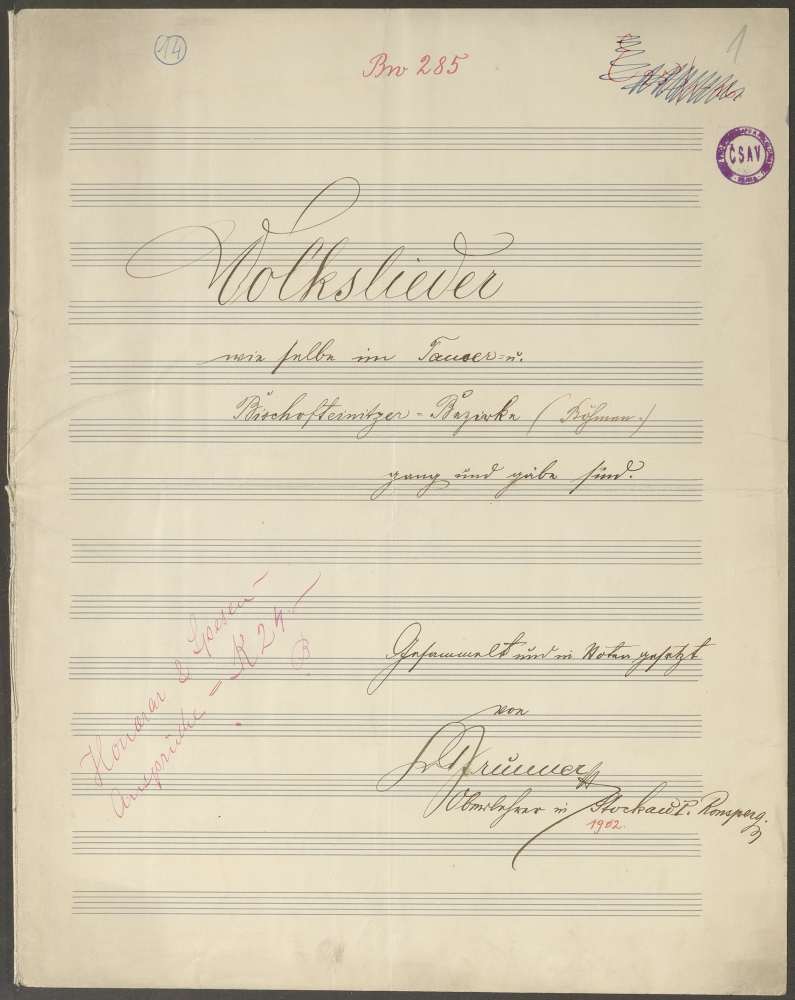 14
Bw 285
1
ČSAV
Volkslieder
wie selbe im Tauser= u.
Bischofteinitzer=Bezirke (Böhmen.)
gang und gäbe sind.
Honorar & Spesen
Ansprüche = K 24.-
B
Gesammelt und in Noten gesetzt
von
Brunner
Oberlehrer in Stockau P. Ronsperg.
1902.